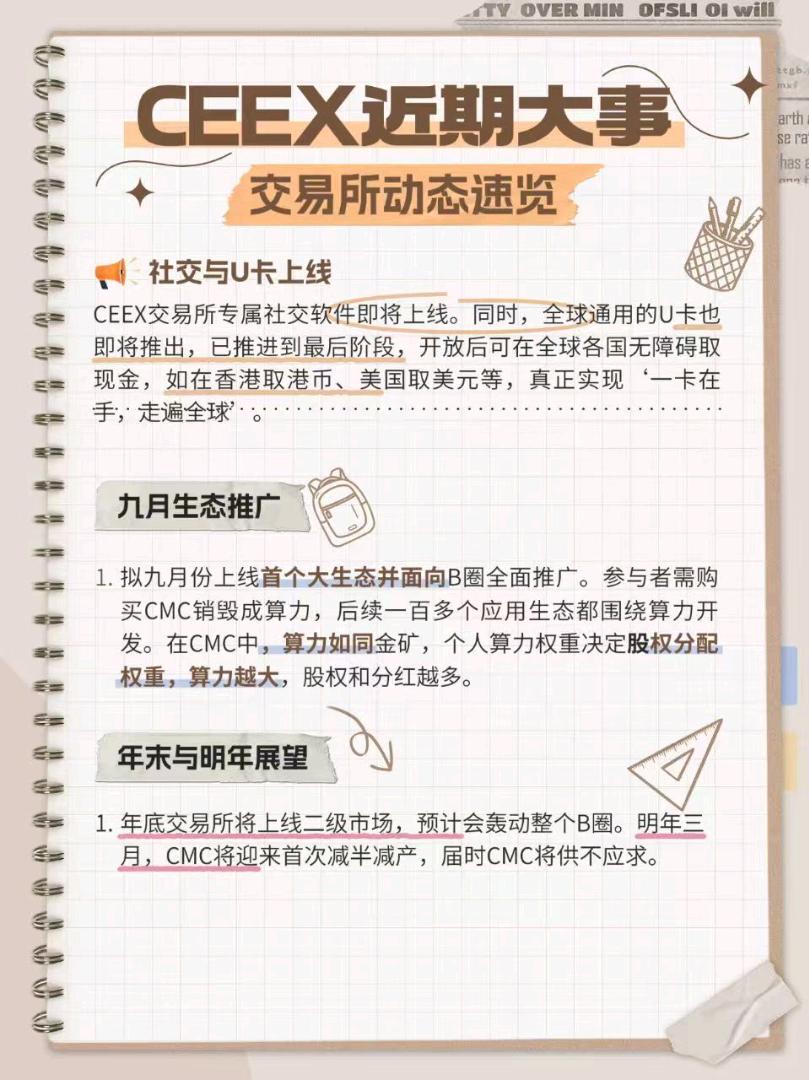 TY OVER MIN OFSLI OI will
CEEX近期大事
交易所动态速览
社交与U卡上线
CEEX交易所专属社交软件即将上线。同时，全球通用的U卡也
即将推出，已推进到最后阶段，开放后可在全球各国无障碍取
现金，如在香港取港币、美国取美元等，真正实现‘一卡在
手，走遍全球’。
九月生态推广
1. 拟九月份上线首个大生态并面向B圈全面推广。参与者需购
买CMC销毁成算力，后续一百多个应用生态都围绕算力开
发。在CMC中，算力如同金矿，个人算力权重决定股权分配
权重，算力越大，股权和分红越多。
年末与明年展望
1. 年底交易所将上线二级市场，预计会轰动整个B圈。明年三
月，CMC将迎来首次减半减产，届时CMC将供不应求。